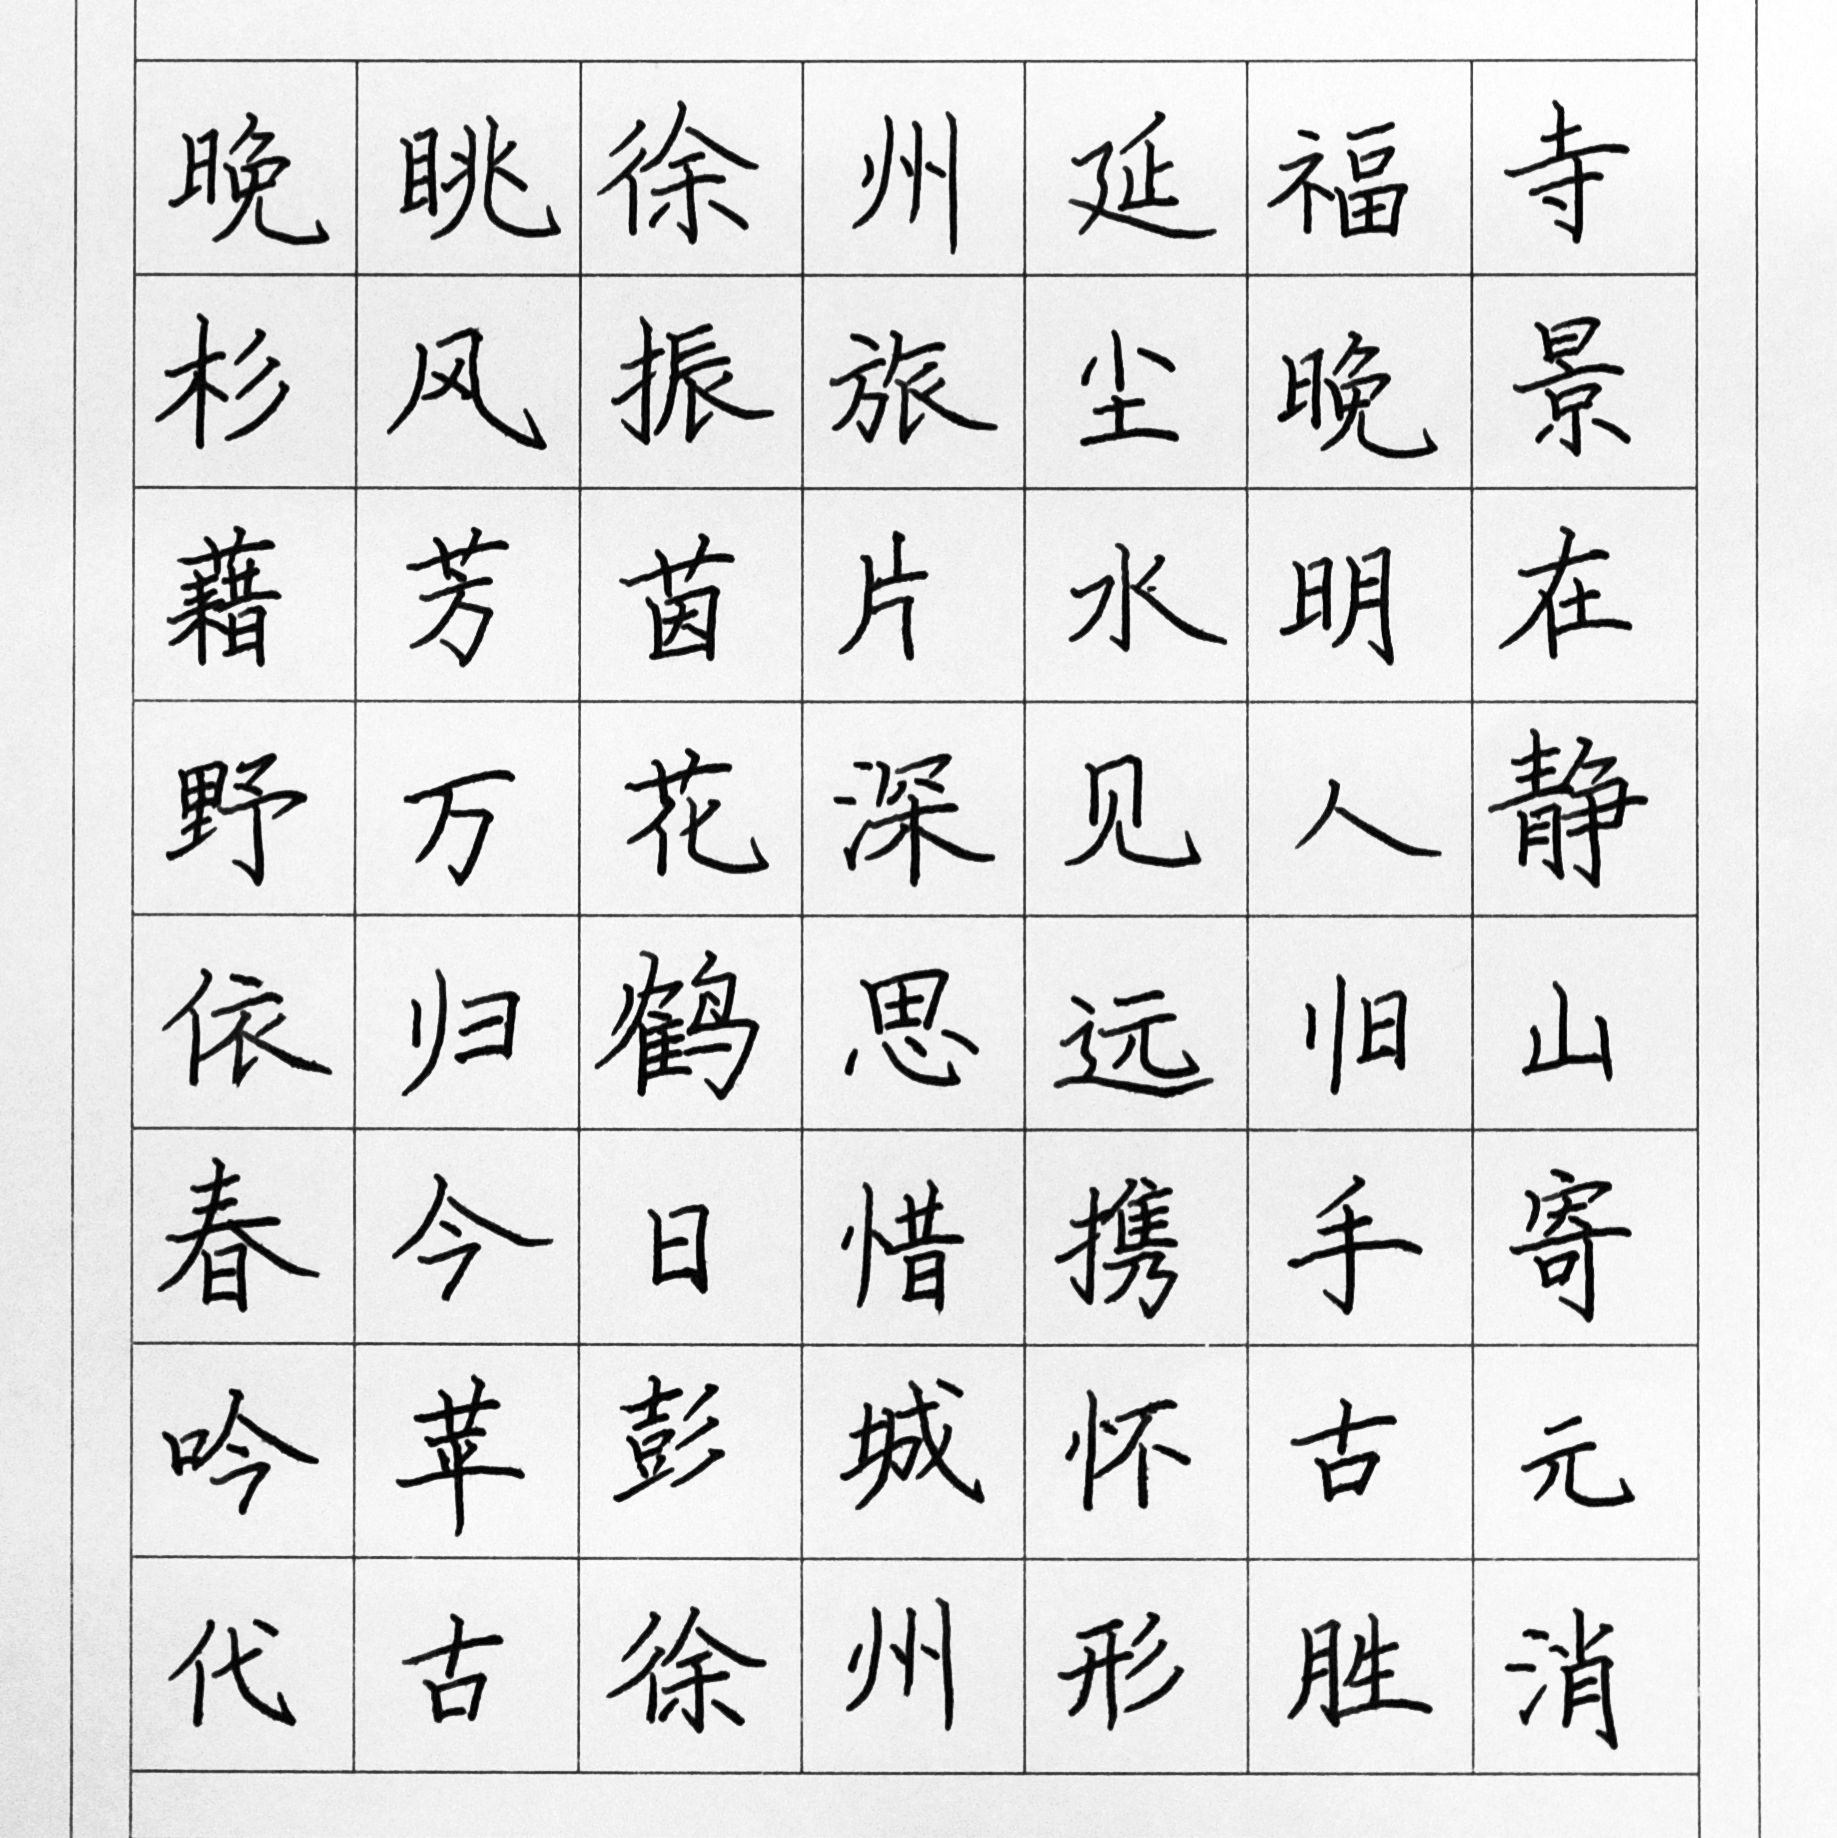 晚眺徐州延福寺
杉风振旅尘晚景
藉芳茵片水明在
野万花深见人静
依归鹤思远旧山
春今日惜携手寄
吟苹彭城怀古元
代古徐州形胜消